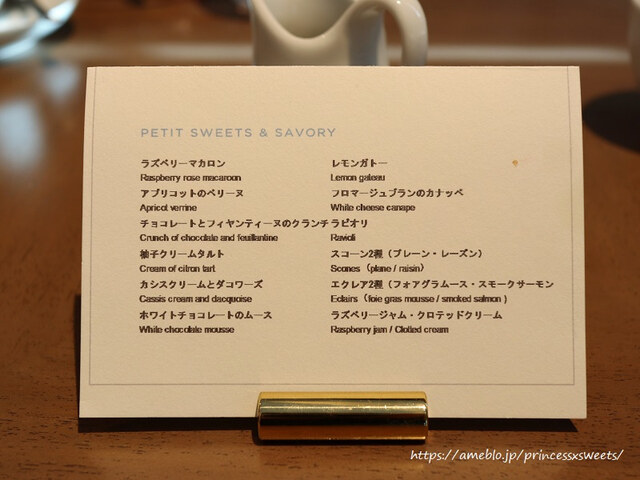 PETIT SWEETS & SAVORY
ラズベリーマカロン
Raspberry rose macaroon
アプリコットのベリーヌ
Apricot verrine
チョコレートとフィヤンティーヌのクランチ
Crunch of chocolate and feuillantine
柚子クリームタルト
Cream of citron tart
カシスクリームとダコワーズ
Cassis cream and dacquoise
ホワイトチョコレートのムース
White chocolate mousse
レモンガトー
Lemon gateau
フロマージュブランのカナッペ
White cheese canape
ラビオリ
Ravioli
スコーン2種（プレーン・レーズン）
Scones（plane / raisin）
エクレア2種（フォアグラムース・スモークサーモン
Eclairs（foie gras mousse / smoked salmon ）
ラズベリージャム・クロテッドクリーム
Raspberry jam / Clotted cream
https://ameblo.jp/princessxsweets/